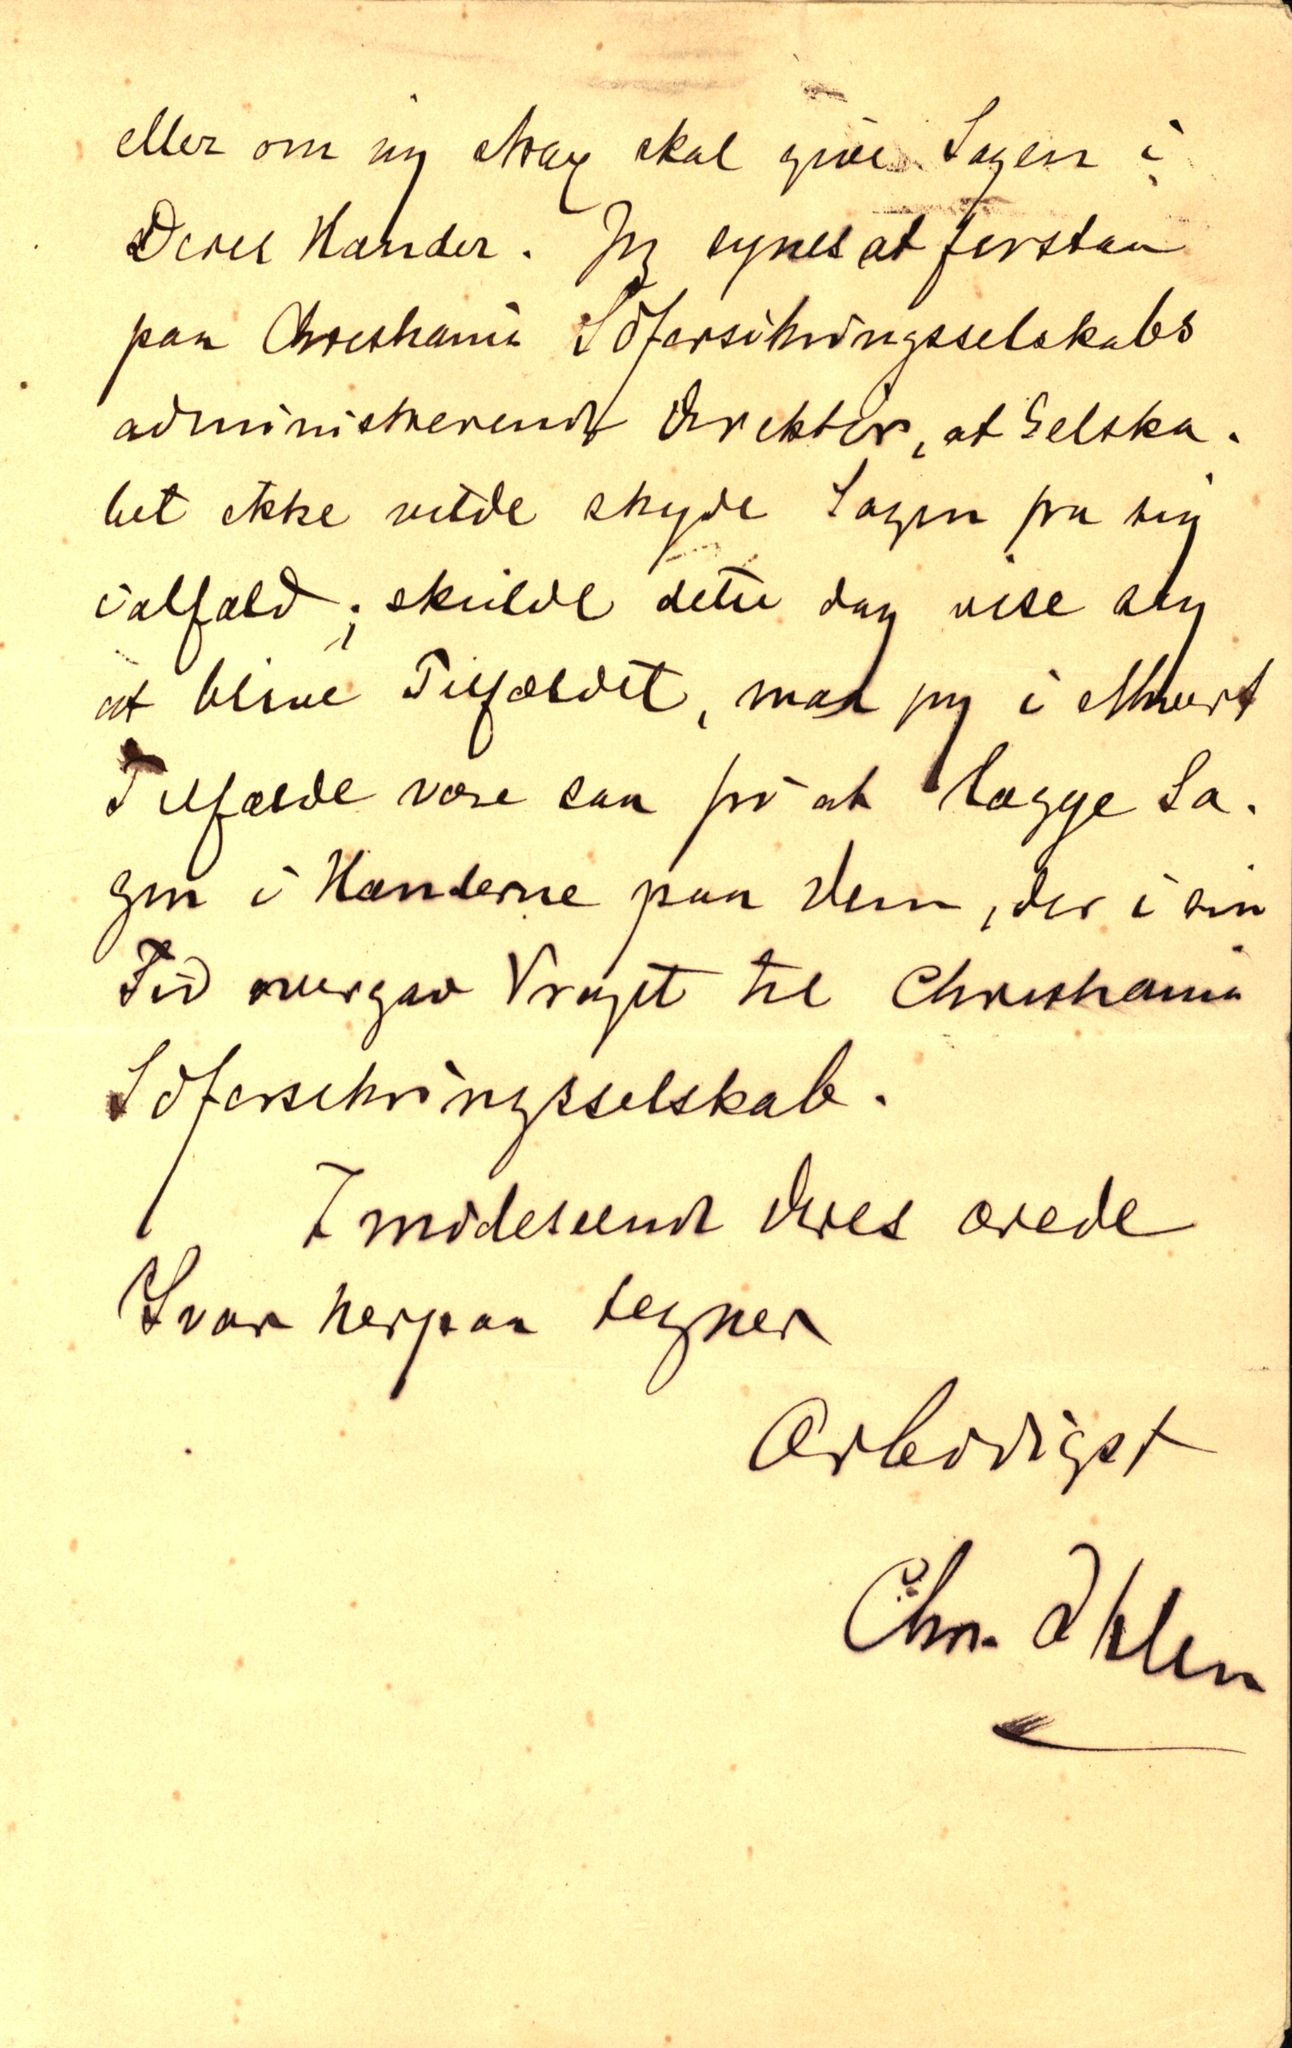 eller om jeg strax skal give Sagen i
Deres Hænder. Jeg synes at forstaa
paa Christiania Söforsikringsselskabs
administrerende Direktör, at Selska-
bet ikke vilde skyde Sagen fra sig
ialfald; skulde dette dog vise sig
at blive Tilfældet, maa jeg i ethvert
Tilfælde være saa fri at lægge Sa-
gen i Hænderne paa Dem, der i sin
Tid overgav Vraget til Christiania
Söforsikringsselskab.
Imödeseende Deres ærede
Svar herpaa tegner
Ærbödigst
Chr. Ihlen